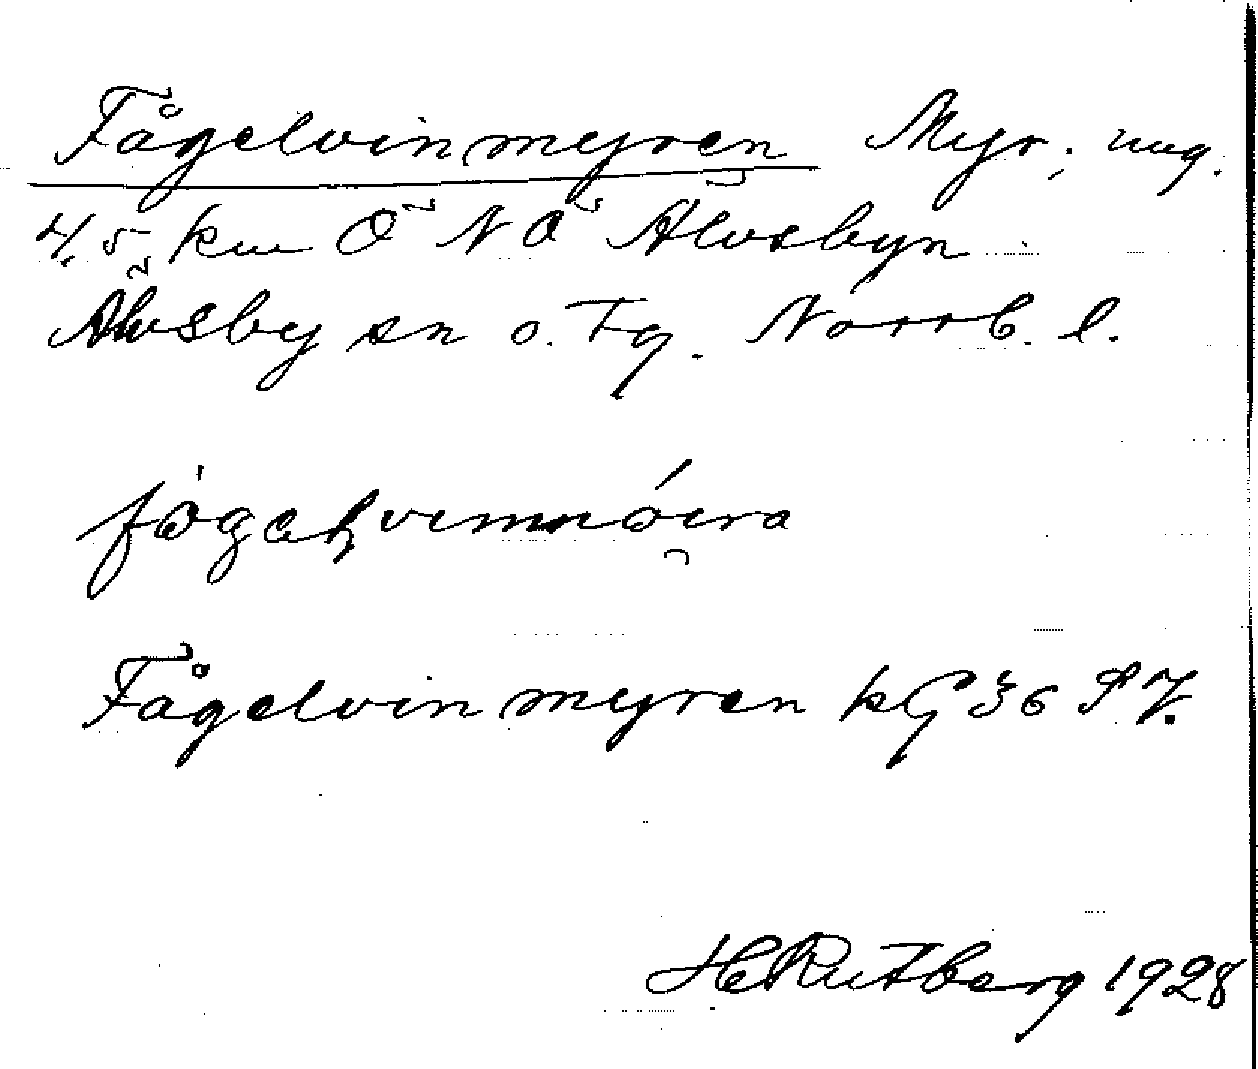 Fågelvinmyren Myr; ung.
4,5 km Ö N Ö Älvsbyn
Älvsby sn o. Tg. Norrb. l.
Fågelvinmyren kG 36 S 7.
H Rutberg 1928